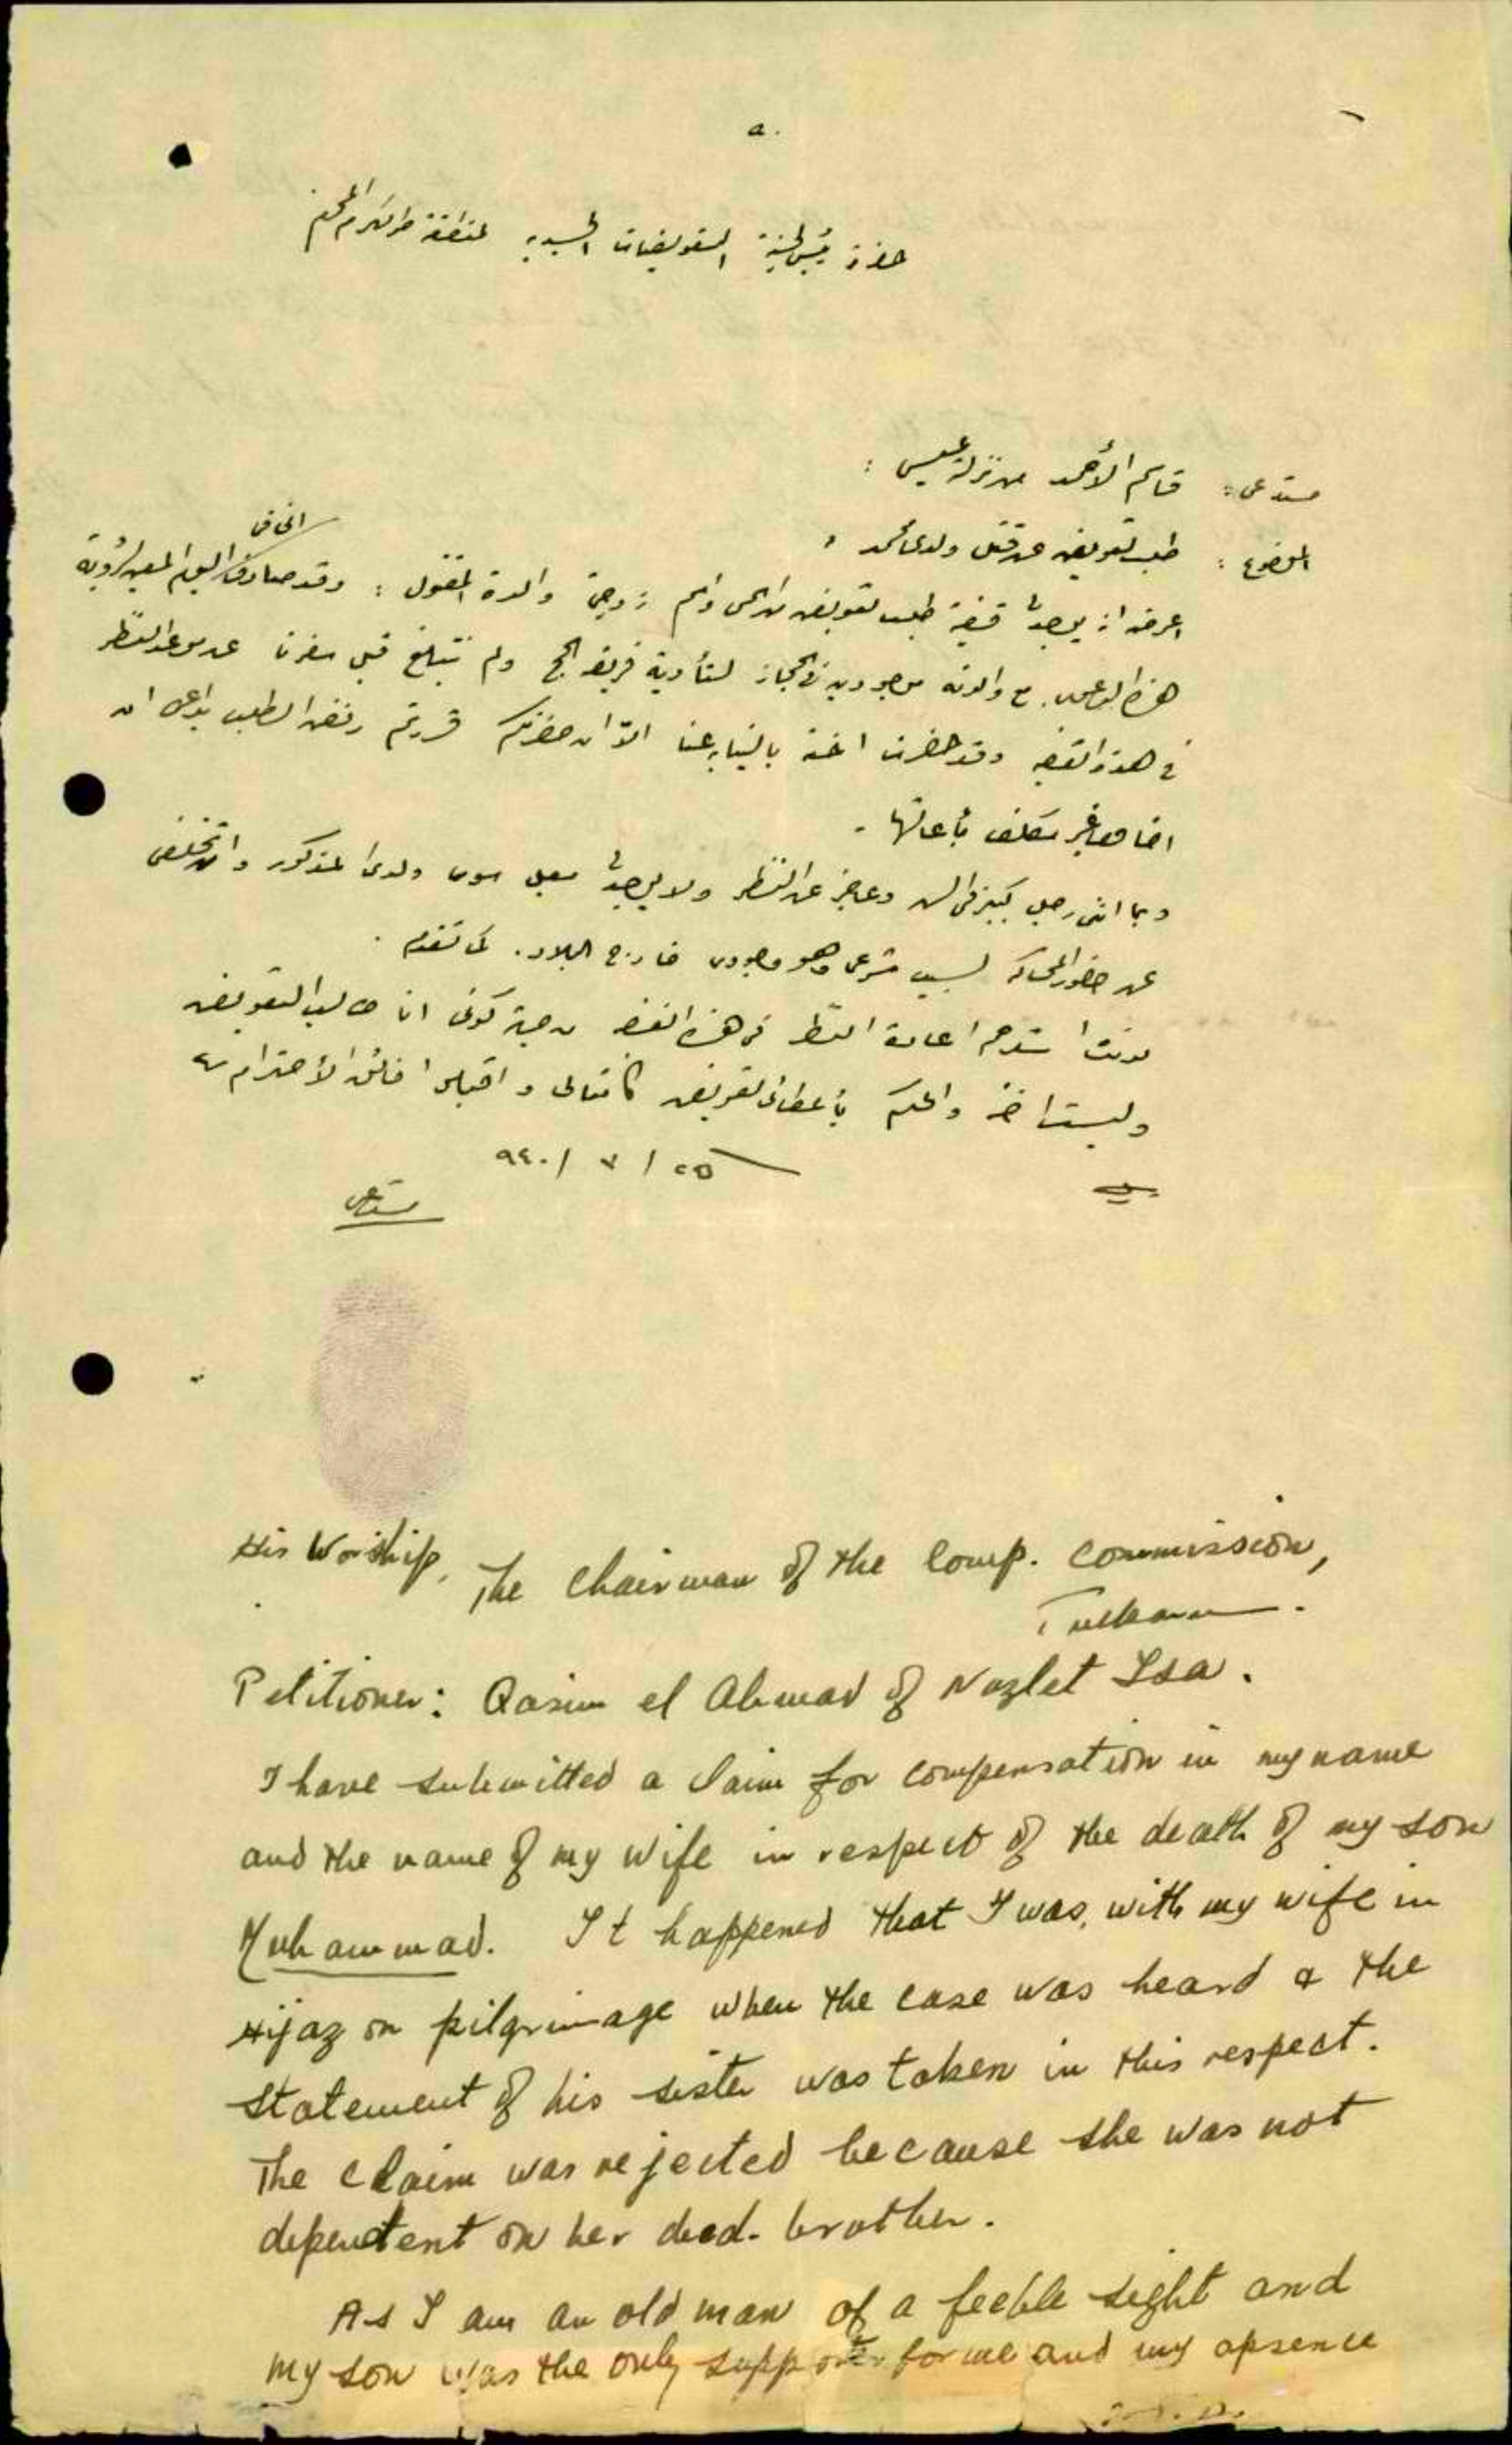 a.
حضرة رئيس لجنة التعويضات الجسدية لمنطقة طولكرم المحترم
مستدعي: قاسم الأحمد من نزلة عيسى:
الموضوع: طلب تعويض عن قتل ولدي محمد،
اعرض انه يوجد قضية طلب تعويض من اسمي واسم زوجتي والدة المقتول: وقد صادف اليوم المعين لرؤية
هذه الدعوى مع والدته موجودين في الحجاز لتأدية فريضة الحج ولم نتبلغ قبل سفرنا عن موعد النظر
في هذه القضيه وقد حضرت اخته بالنيابه عنا الا ان حضرتكم قررتم رفض الطلب بداعي ان
اخاها غير مكلف بأعالتها.
وبما انني رجل كبير في السن وعاجز عن النظر ولا يوجد معيل سوى ولدي المذكور وان تخلفي
عن حضور المحاكمه لسبب شرعي وهو وجودي خارج البلاد. كما تقدم.
استرحم اعادة النظر في هذه القضيه من جهة كوني انا طالب التعويض
وليست اخته والحكم بأعطائي تعويض كامثالي واقبلوا فائق الأحترام
٢٥ / ٧ / ٩٤٠
مستدعي
His Worship,
The Chairman of the Comp. Commission,
Tulkarm.
Petitioner: Qasim el Ahmad of Nazlet Isa.
I have submitted a claim for compensation in my name
and the name of my wife in respect of the death of my son
Muhammad. It happened that I was, with my wife in
Hijaz on pilgrimage when the case was heard & the
statement of his sister was taken in this respect.
The claim was rejected because she was not
dependent on her decd. brother.
As I am an old man of a feeble sight and
my son was the only supporter for me and my absence